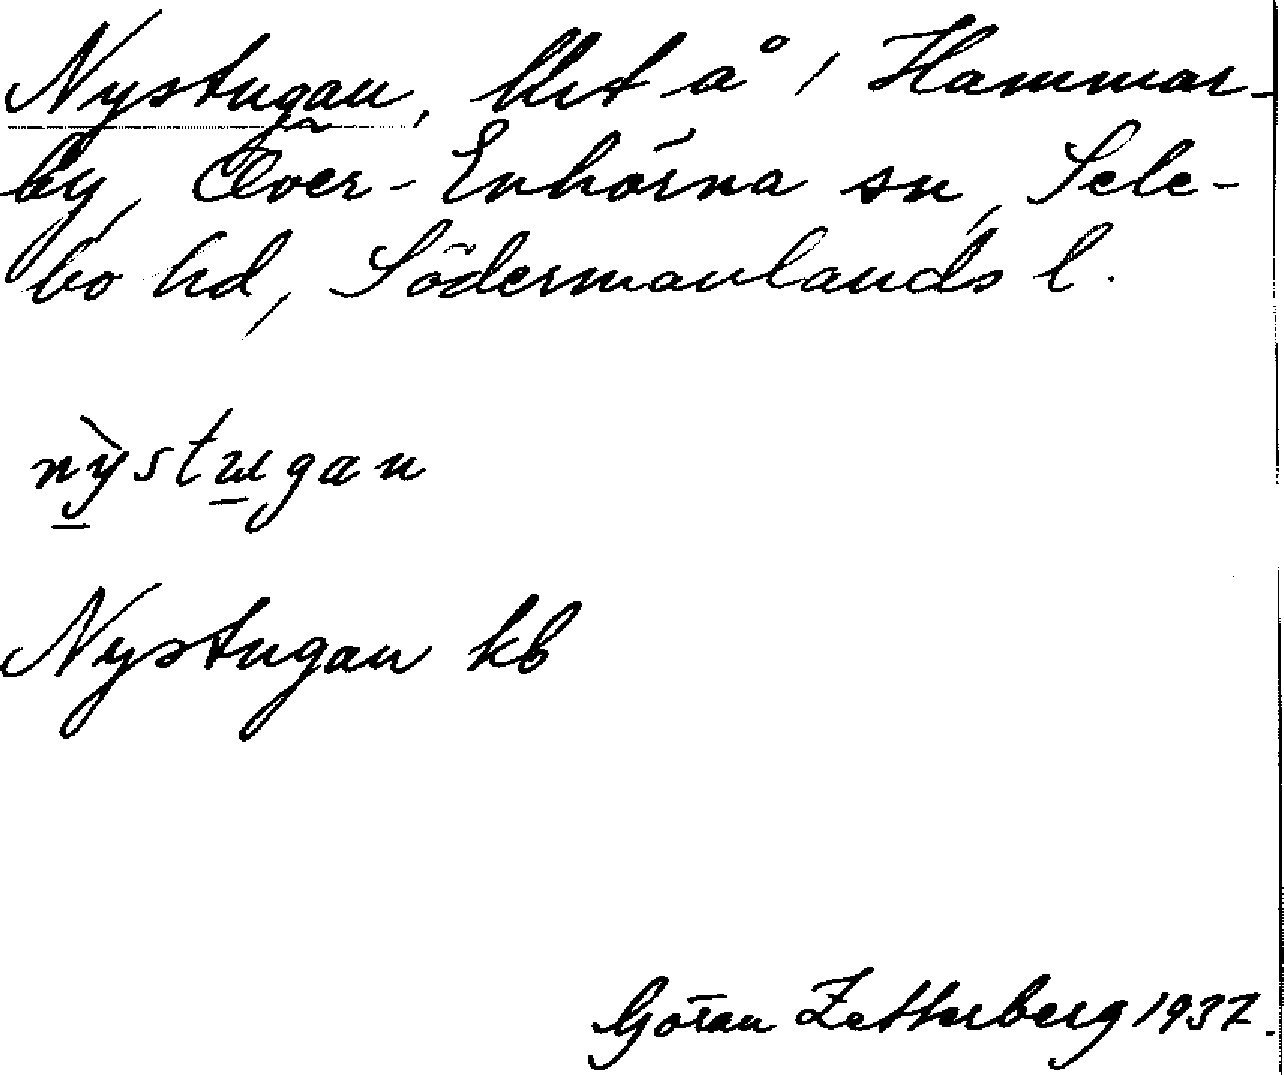 Nystugan, lht å 1 Hammar-
by, Över-Enhörna sn, Sele-
bo hd, Södermanlands l.
nỳstugan
Nystugan kb
Göran Zetterberg 1937.